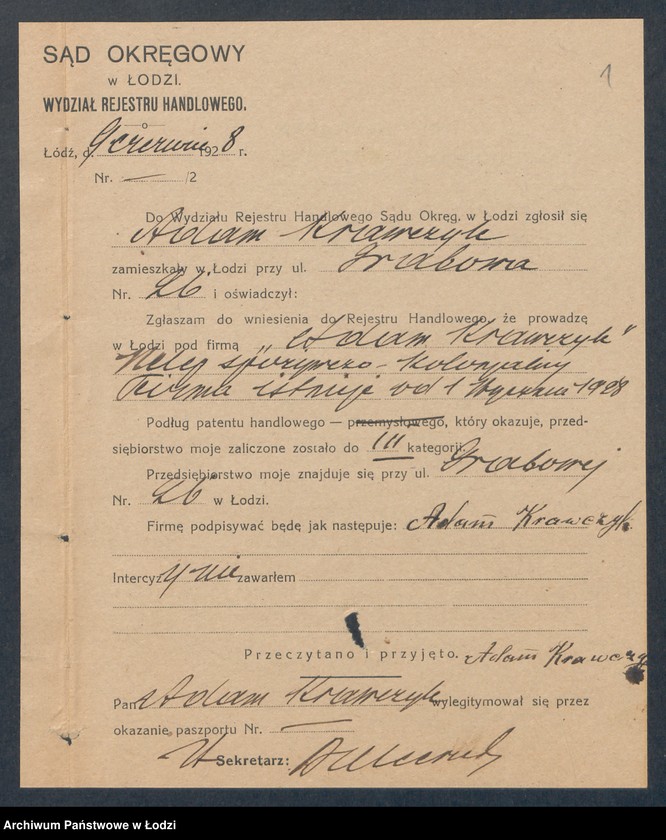 SĄD OKRĘGOWY
w ŁODZI.
WYDZIAŁ REJESTRU HANDLOWEGO.
1
Łódź, d. 9 czerwca 1928 r.
Nr. — /2
Do Wydziału Rejestru Handlowego Sądu Okręg. w Łodzi zgłosił się
Adam Krawczyk
zamieszkały w Łodzi przy ul. Grabowa
Nr. 26 i oświadczył:
Zgłaszam do wniesienia do Rejestru Handlowego, że prowadzę
w Łodzi pod firmą „Adam Krawczyk"
sklep spożywczo-kolonjalny
Firma istnieje od 1 stycznia 1928
Podług patentu handlowego — przemysłowego, który okazuje, przed-
siębiorstwo moje zaliczone zostało do III kategorji.
Przedsiębiorstwo moje znajduje się przy ul. Grabowej
Nr. 26 w Łodzi.
Firmę podpisywać będę jak następuje: Adam Krawczyk
Intercyzy nie zawarłem
Przeczytano i przyjęto. Adam Krawczyk
Pan Adam Krawczyk wylegitymował się przez
okazanie paszportu Nr. —
Sekretarz:
Archiwum Państwowe w Łodzi